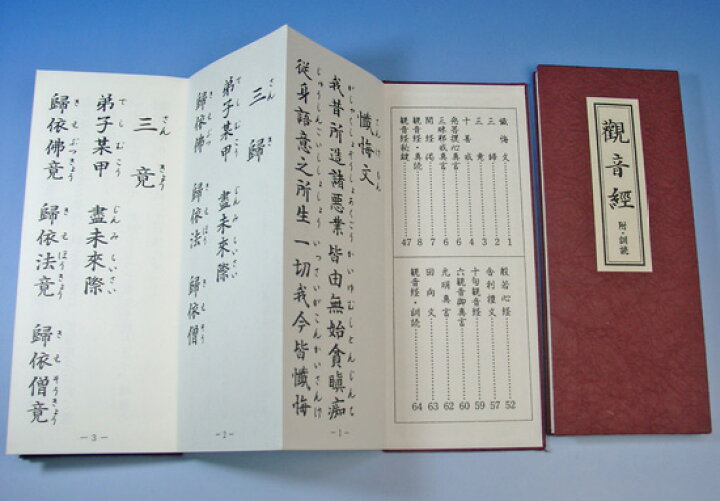 觀音經
附・訓読
懺悔文 1
三帰 2
三竟 3
十善戒 4
発菩提心真言 6
三昧耶戒真言 6
開経偈 7
観音経・真読 8
観音経秘鍵 47
般若心経 52
舎利禮文 57
十句観音経 59
六観音御真言 60
光明真言 62
回向文 63
観音経・訓読 64
さんげもん
懺悔文
がしゃくしょぞうしょあくごう かいゆむしとんじんち
我昔所造諸悪業 皆由無始貪瞋痴
じゅうしんごいししょしょう いっさいがこんかいさんげ
從身語意之所生 一切我今皆懺悔
－1－
さん き
三歸
でしむこう じんみらいさい
弟子某甲 盡未來際
きえぶつ きえほう きえそう
歸依佛 歸依法 歸依僧
－2－
さん きょう
三竟
でしむこう じんみらいさい
弟子某甲 盡未來際
きえぶっきょう きえほうきょう きえそうきょう
歸依佛竟 歸依法竟 歸依僧竟
－3－